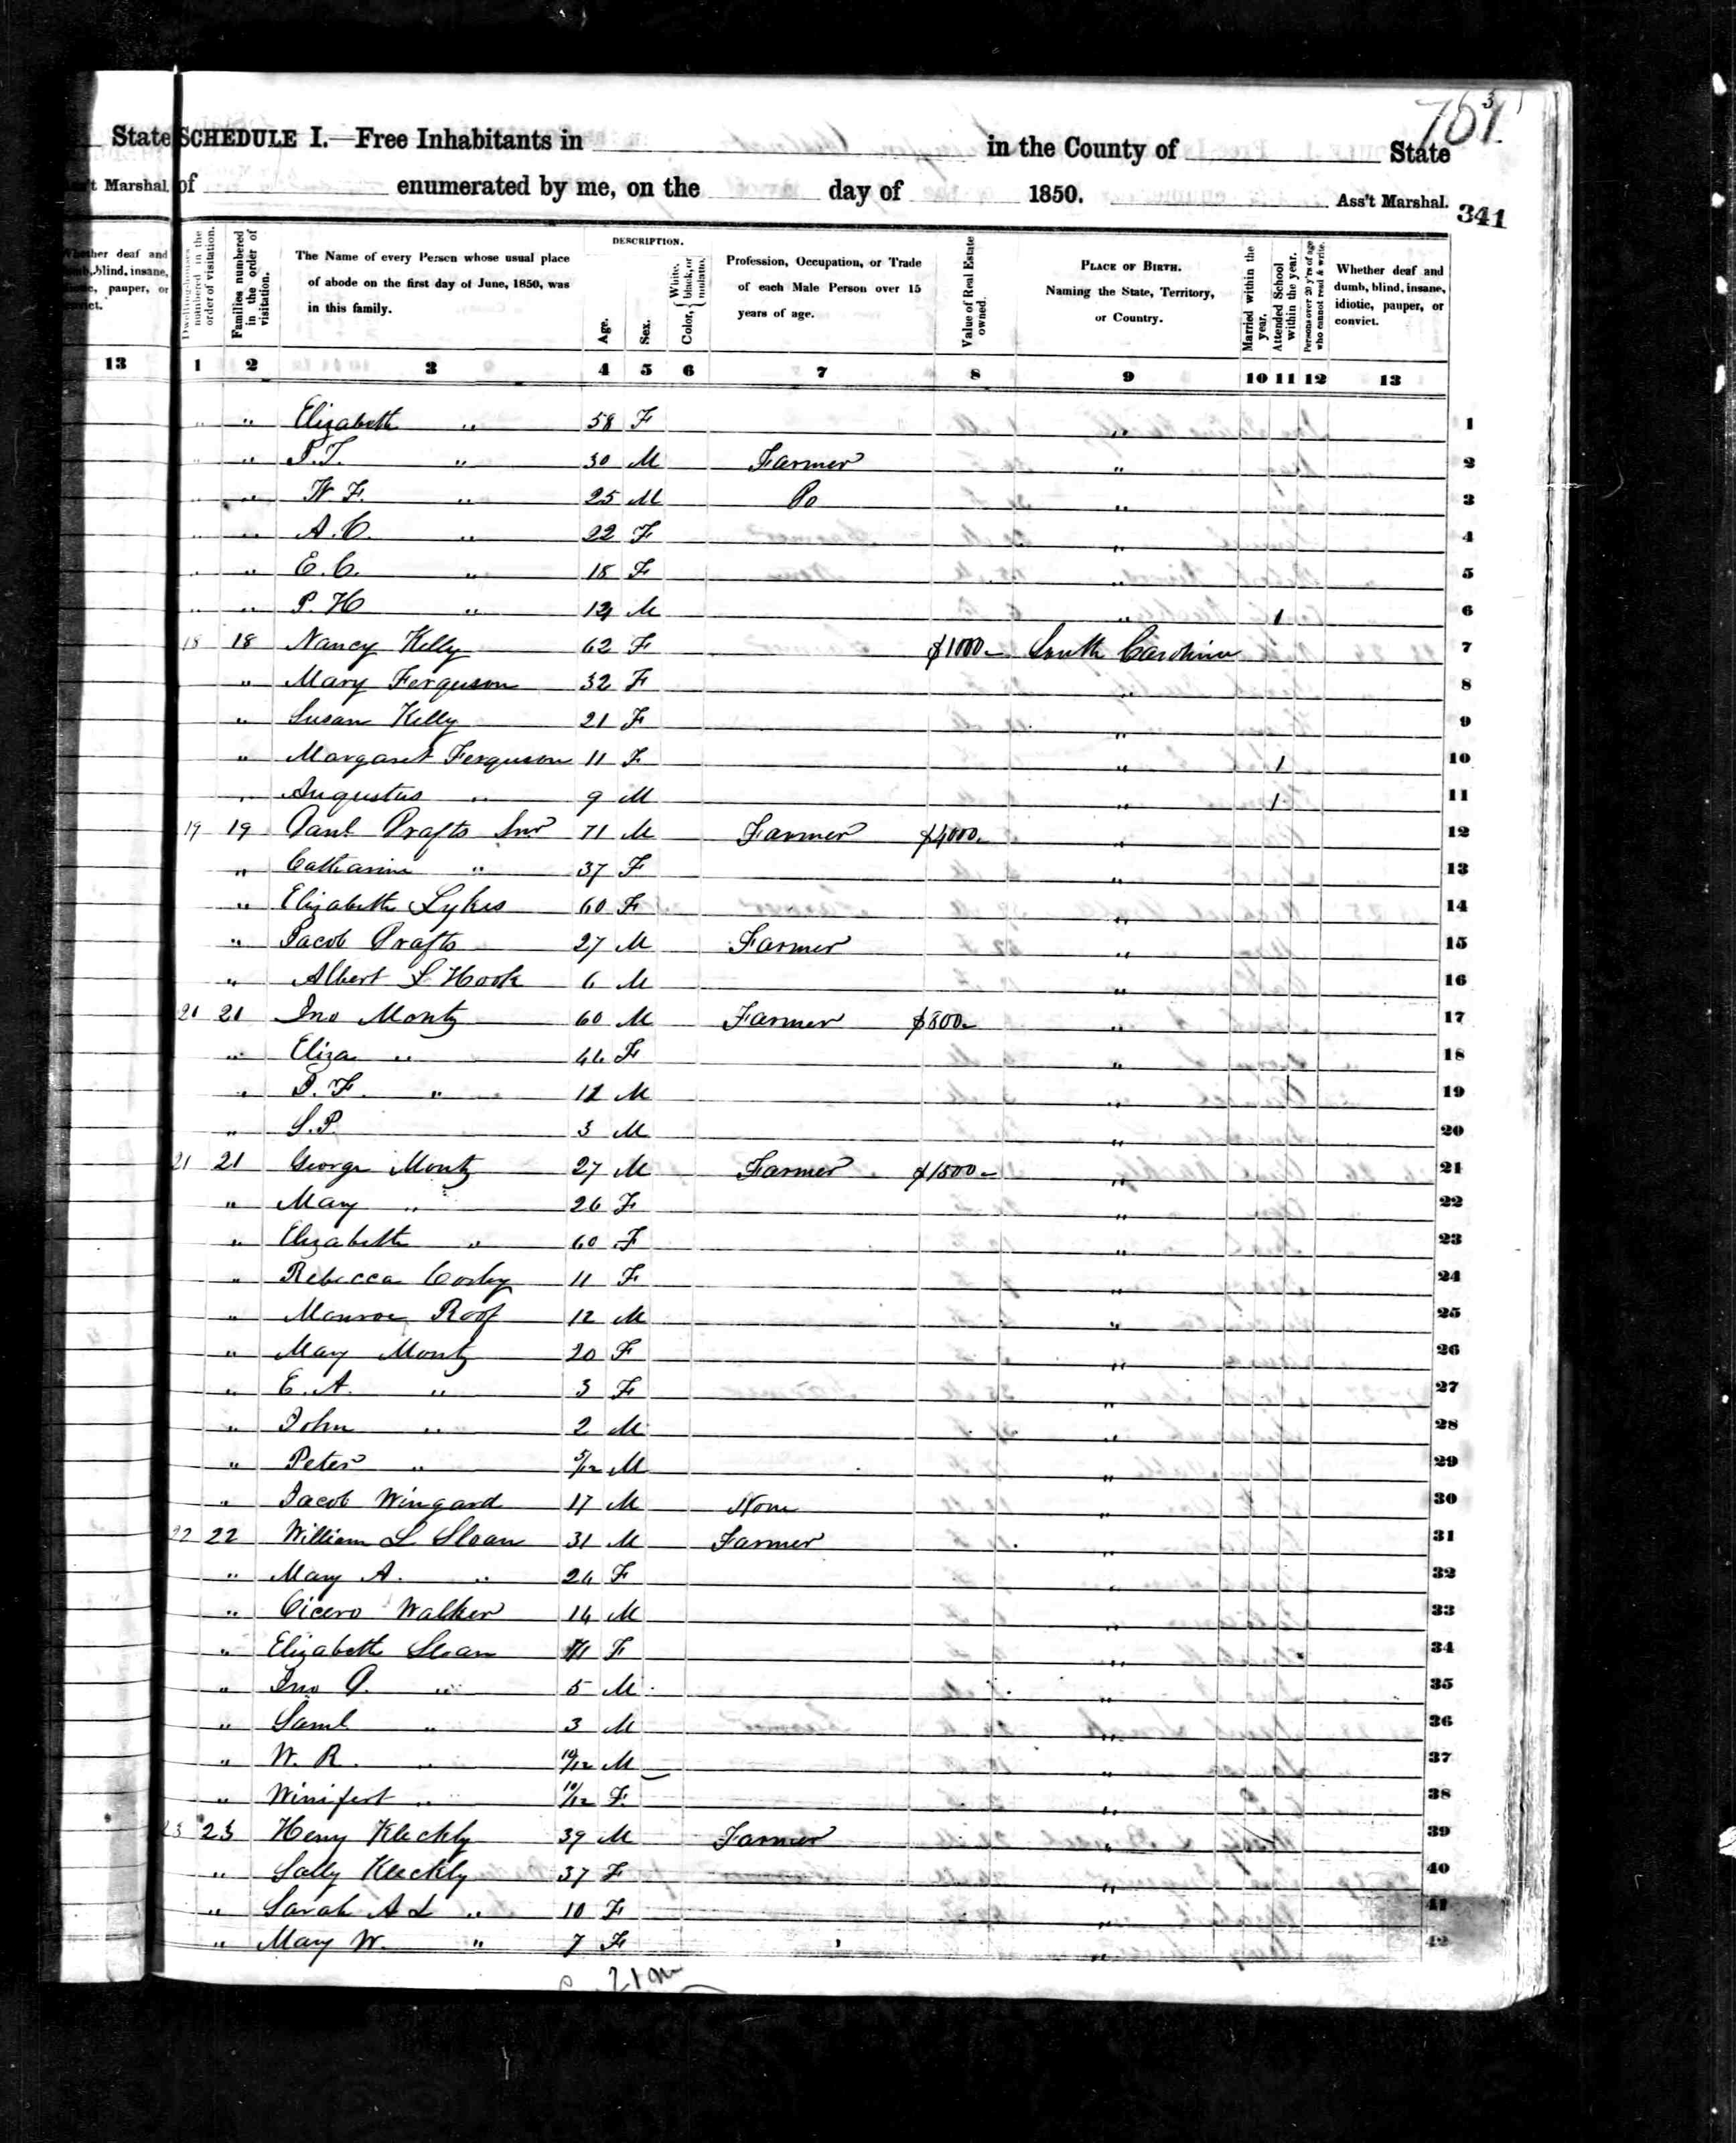 701
State SCHEDULE I.—Free Inhabitants in in the County of State
Ass't Marshal. of enumerated by me, on the day of 1850. Ass't Marshal.
341
DESCRIPTION.
Whether deaf and dumb, blind, insane, idiotic, pauper, or convict.
Dwelling-houses numbered in the order of visitation.
Families numbered in the order of visitation.
The Name of every Person whose usual place of abode on the first day of June, 1850, was in this family.
Age.
Sex.
Color, { White, black, or mulatto.
Profession, Occupation, or Trade of each Male Person over 15 years of age.
Value of Real Estate owned.
PLACE OF BIRTH. Naming the State, Territory, or Country.
Married within the year.
Attended School within the year.
Persons over 20 y'rs of age who cannot read & write.
Whether deaf and dumb, blind, insane, idiotic, pauper, or convict.
13 1 2 3 4 5 6 7 8 9 10 11 12 13
" " Elizabeth " 58 F " 1
" " " 30 M Farmer " 2
" " W. F. " 25 M Do " 3
" " A. C. " 22 F " 4
" " E. C. " 18 F " 5
" " P. H " 14 M " 1 6
18 18 Nancy Kelly 62 F $1000 South Carolina 7
" Mary Ferguson 32 F " 8
" Susan Kelly 21 F " 9
" Margaret Ferguson 11 F " 1 10
" Augustus " 9 M " 1 11
19 19 Paul Drafts Snr 71 M Farmer $4000 " 12
" Catharine " 37 F " 13
" Elizabeth Lykes 60 F " 14
" Jacob Drafts 27 M Farmer " 15
" Albert L Hook 6 M " 16
21 21 Jno Montz 60 M Farmer $800 " 17
" Eliza " 44 F " 18
" J. F. " M " 1 19
" S. P. 3 M " 20
21 21 George Montz 27 M Farmer $1500 " 21
" Mary " 26 F " 22
" Elizabeth " 60 F " 23
" Rebecca 11 F " 24
" Monroe Roof 12 M " 25
" Mary Montz 20 F " 26
" E. A. " 3 F " 27
" John " 2 M " 28
" Peter " 5/12 M " 29
" Jacob Wingard 17 M None " 30
22 22 William L Sloan 31 M Farmer " 31
" Mary A. " 24 F " 32
" Cicero Walker 14 M " 33
" Elizabeth Sloan F " 34
" Jno P. " 5 M " 35
" Saml " 3 M " 36
" W. R. " 10/12 M " 37
" Winifert " 10/12 F " 38
23 23 Henry Kleckly 39 M Farmer " 39
" Sally Kleckly 37 F " 40
" Sarah A L " 10 F " 41
" Mary W. " 7 F " 42